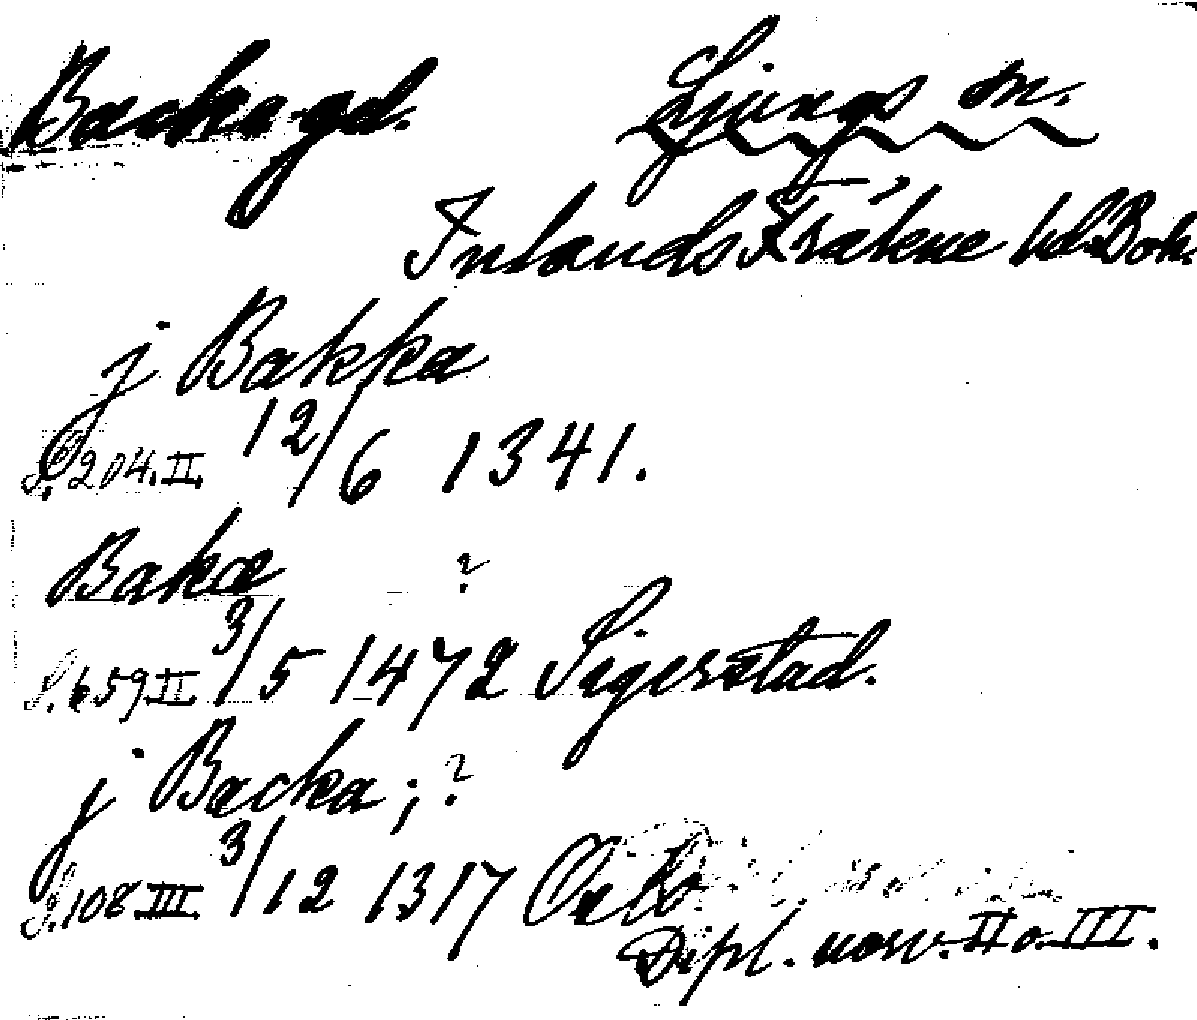 Backa gd. Ljungs sn.
Inlands Fräkne hd. Boh.
j Bakka
S. 204. II. 12/6 1341.
Bakæ ?
S. 659 II 3/5 1472 Sigerstad.
j Backa ; ?
S. 108 III. 3/12 1317 Oslo
Dipl. norv. II o. III.